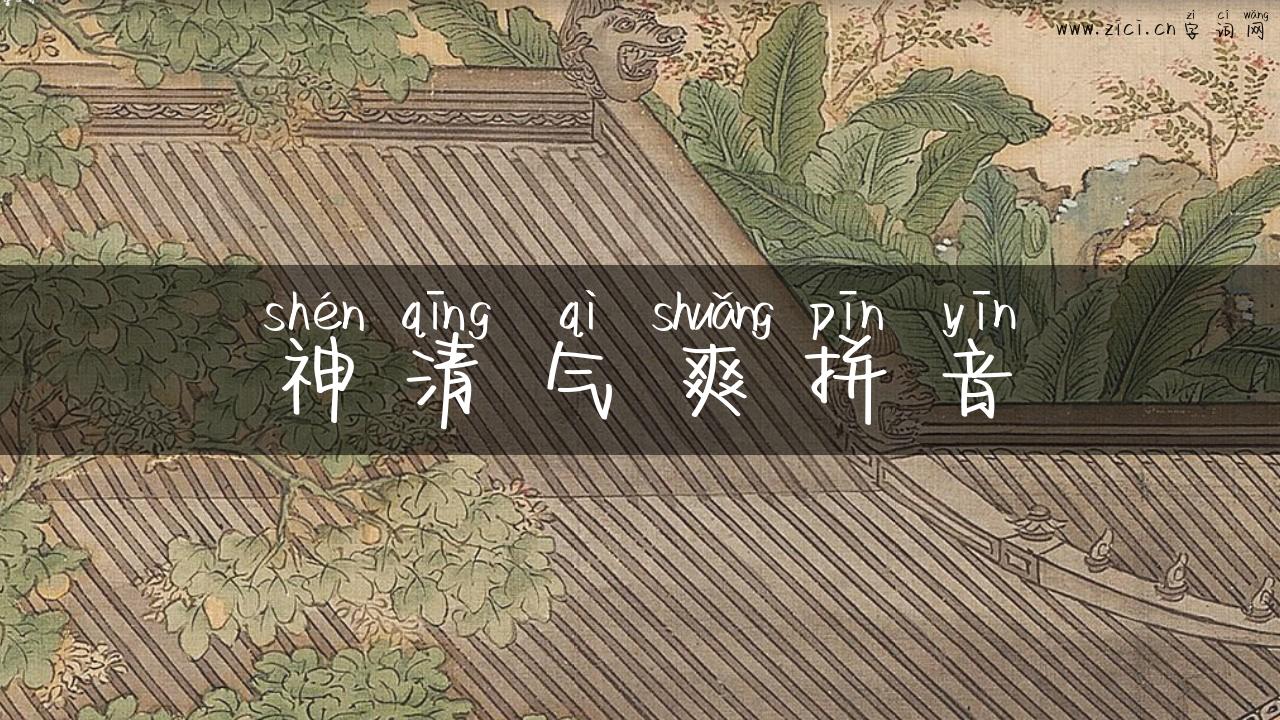 zì cí wǎng
www.zici.cn 字词网
shén qīng qì shuǎng pīn yīn
神清气爽拼音